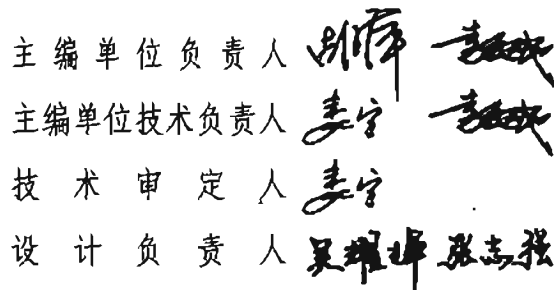 主编单位负责人
主编单位技术负责人 娄宇
技术审定人 娄宇
设计负责人 吴耀华 张志强